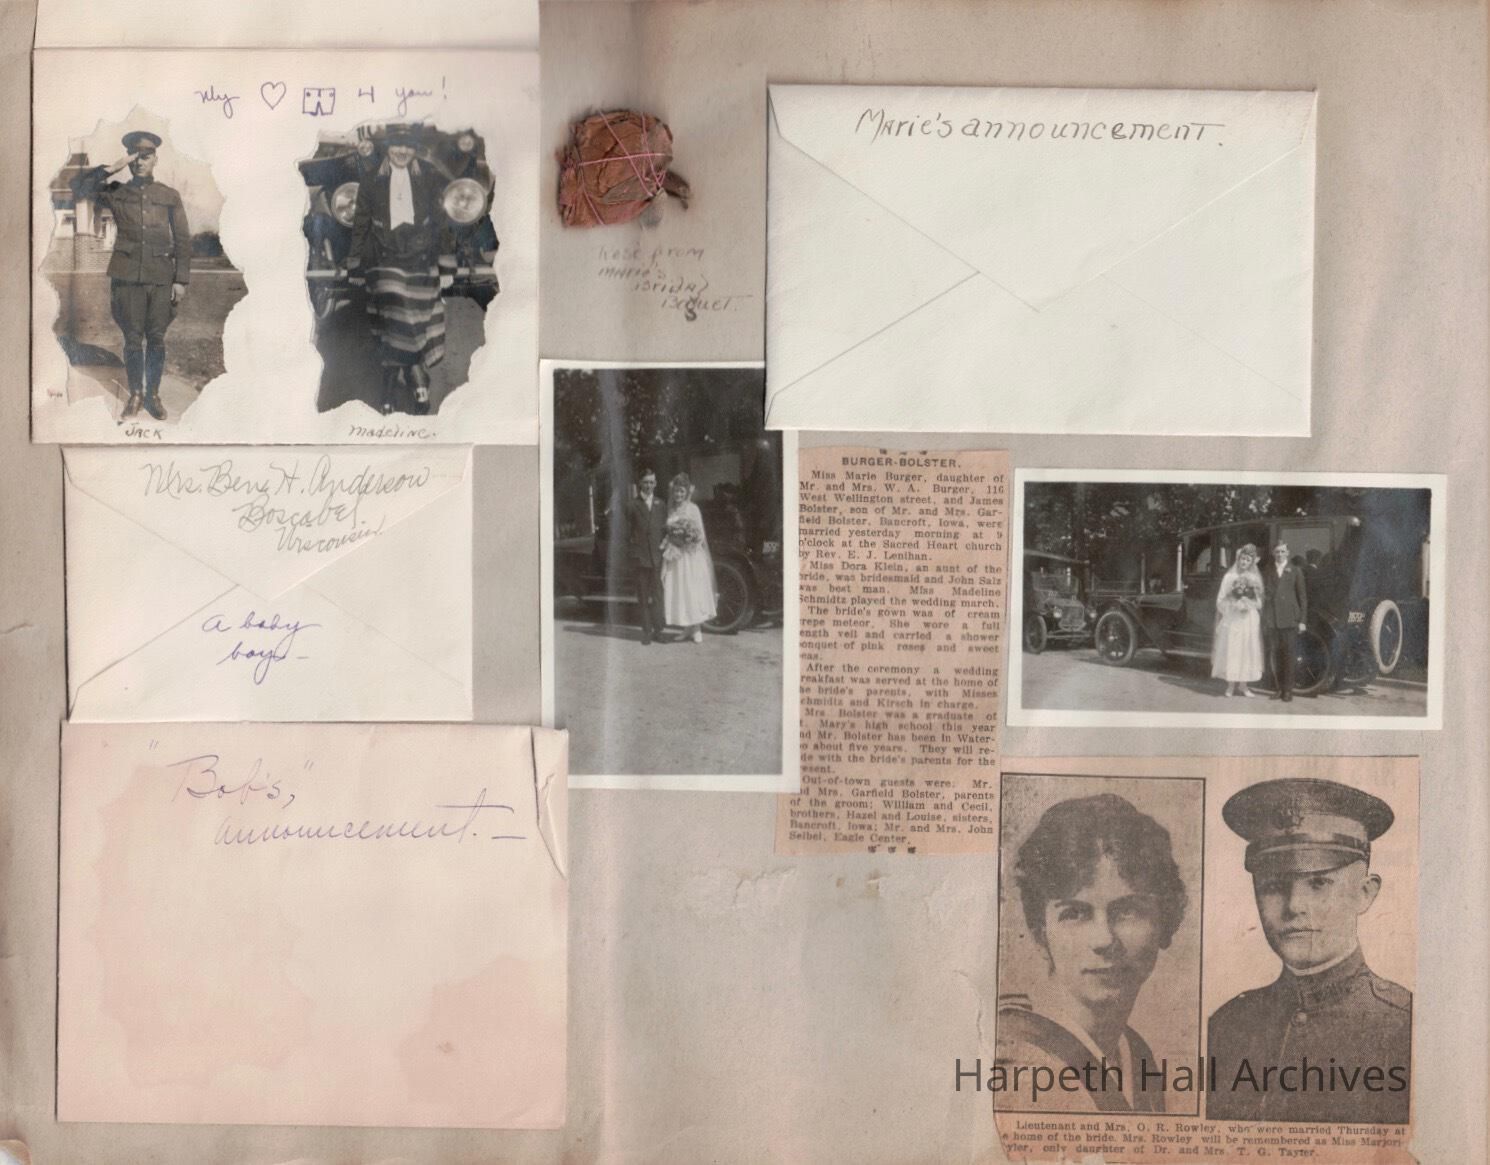 My ♡ 4 you!
JACK
Madeline.
Rose from
Marie's
Bridal
Boquet.
Marie's announcement.
Mrs. Ben. H. Anderson
Boscabel.
Wisconsin.
A baby
boy -
"Bob's,"
announcement. -
BURGER-BOLSTER.
Miss Marie Burger, daughter of
Mr. and Mrs. W. A. Burger, 116
West Wellington street, and James
Bolster, son of Mr. and Mrs. Gar-
field Bolster, Bancroft, Iowa, were
married yesterday morning at 9
o'clock at the Sacred Heart church
by Rev. E. J. Lenihan.
Miss Dora Klein, an aunt of the
bride, was bridesmaid and John Salz
was best man. Miss Madeline
Schmidtz played the wedding march.
The bride's gown was of cream
crepe meteor. She wore a full
ength veil and carried a shower
onquet of pink roses and sweet
eas.
After the ceremony a wedding
reakfast was served at the home of
he bride's parents, with Misses
chmidtz and Kirsch in charge.
Mrs. Bolster was a graduate of
t. Mary's high school this year
nd Mr. Bolster has been in Water-
o about five years. They will re-
de with the bride's parents for the
resent.
Out-of-town guests were: Mr.
nd Mrs. Garfield Bolster, parents
of the groom; William and Cecil,
brothers, Hazel and Louise, sisters,
Bancroft, Iowa; Mr. and Mrs. John
Seibel, Eagle Center.
Harpeth Hall Archives
Lieutenant and Mrs. O. R. Rowley, who were married Thursday at
e home of the bride. Mrs. Rowley will be remembered as Miss Marjori-
yler, only daughter of Dr. and Mrs. T. G. Tayter.